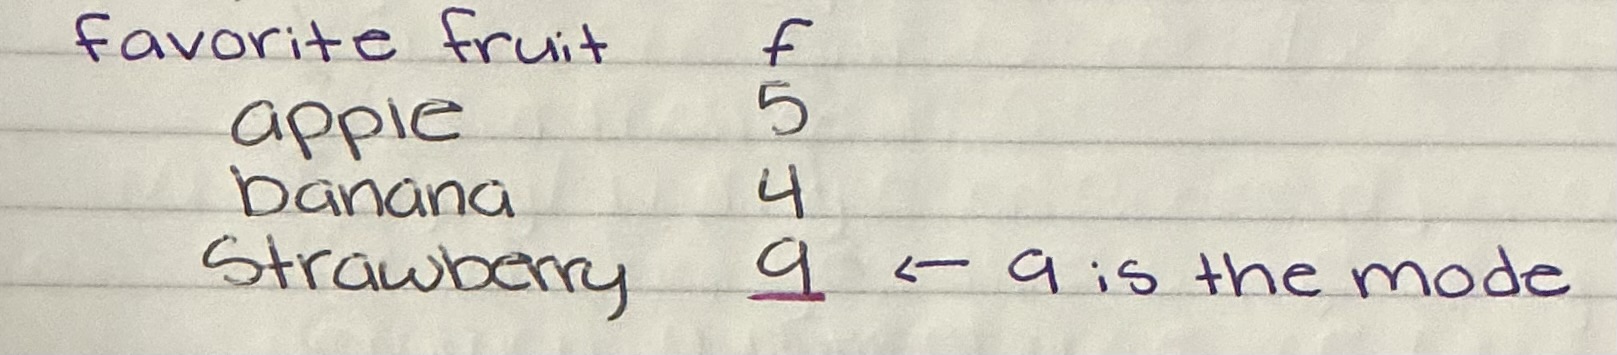 favorite fruit f
apple 5
banana 4
Strawberry 9 ← 9 is the mode